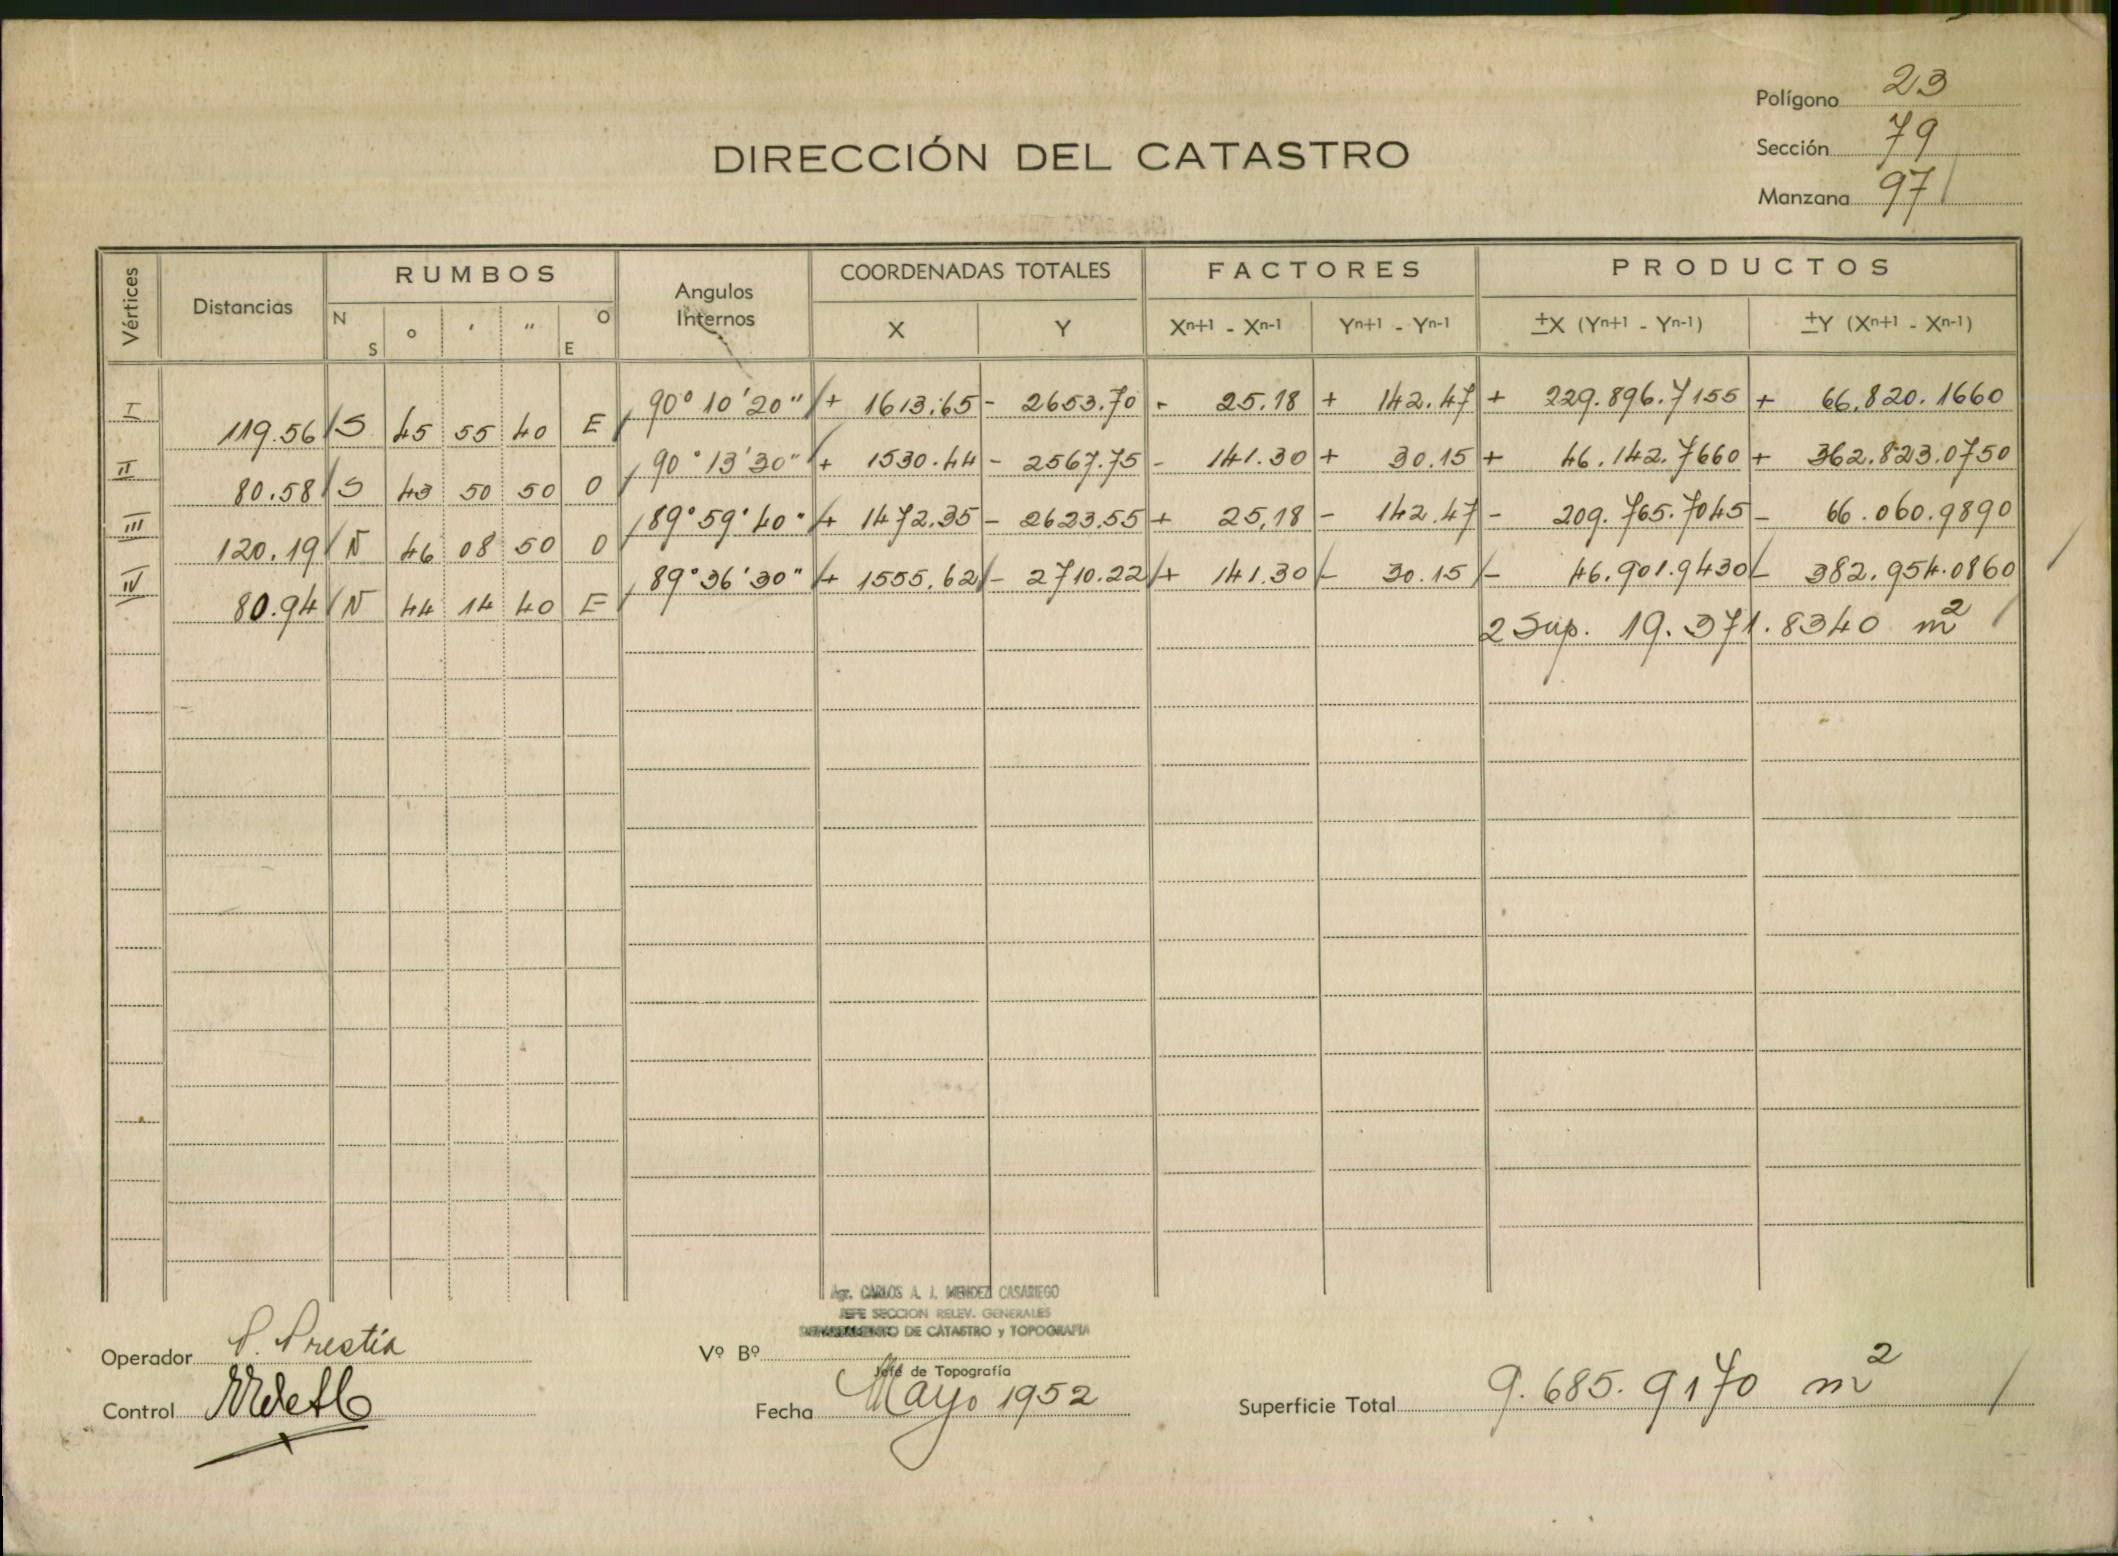 Polígono 23
DIRECCIÓN DEL CATASTRO
Sección 79
Manzana 97
Vértices Distancias RUMBOS Angulos Internos COORDENADAS TOTALES FACTORES PRODUCTOS
N S ° ' " O E X Y Xn+1 - Xn-1 Yn+1 - Yn-1 ±X (Yn+1 - Yn-1) ±Y (Xn+1 - Xn-1)
I 90° 10' 20" + 1613.65 - 2653.70 - 25.18 + 142.47 + 229.896.7155 + 66.820.1660
119.56 S 45 55 40 E
II 90° 13' 30" + 1530.44 - 2567.75 - 141.30 + 30.15 + 46.142.7660 + 362.823.0750
80.58 S 43 50 50 O
III 89° 59' 40" + 1472.35 - 2623.55 + 25,18 - 142.47 - 209.765.7045 - 66.060.9890
120.19 N 46 08 50 O
IV 89° 36' 30" + 1555.62 - 2710.22 + 141.30 - 30.15 - 46.901.9430 - 382.954.0860
80.94 N 44 14 40 E
2 Sup. 19.371.8340 m²
Agr. CARLOS A. J. MENDEZ CASARIEGO
JEFE SECCION RELEV. GENERALES
DE CATASTRO y TOPOGRAFIA
Operador P. Prestia
Vº Bº
Jefe de Topografía
Control
Fecha Mayo 1952
Superficie Total 9.685.9170 m²